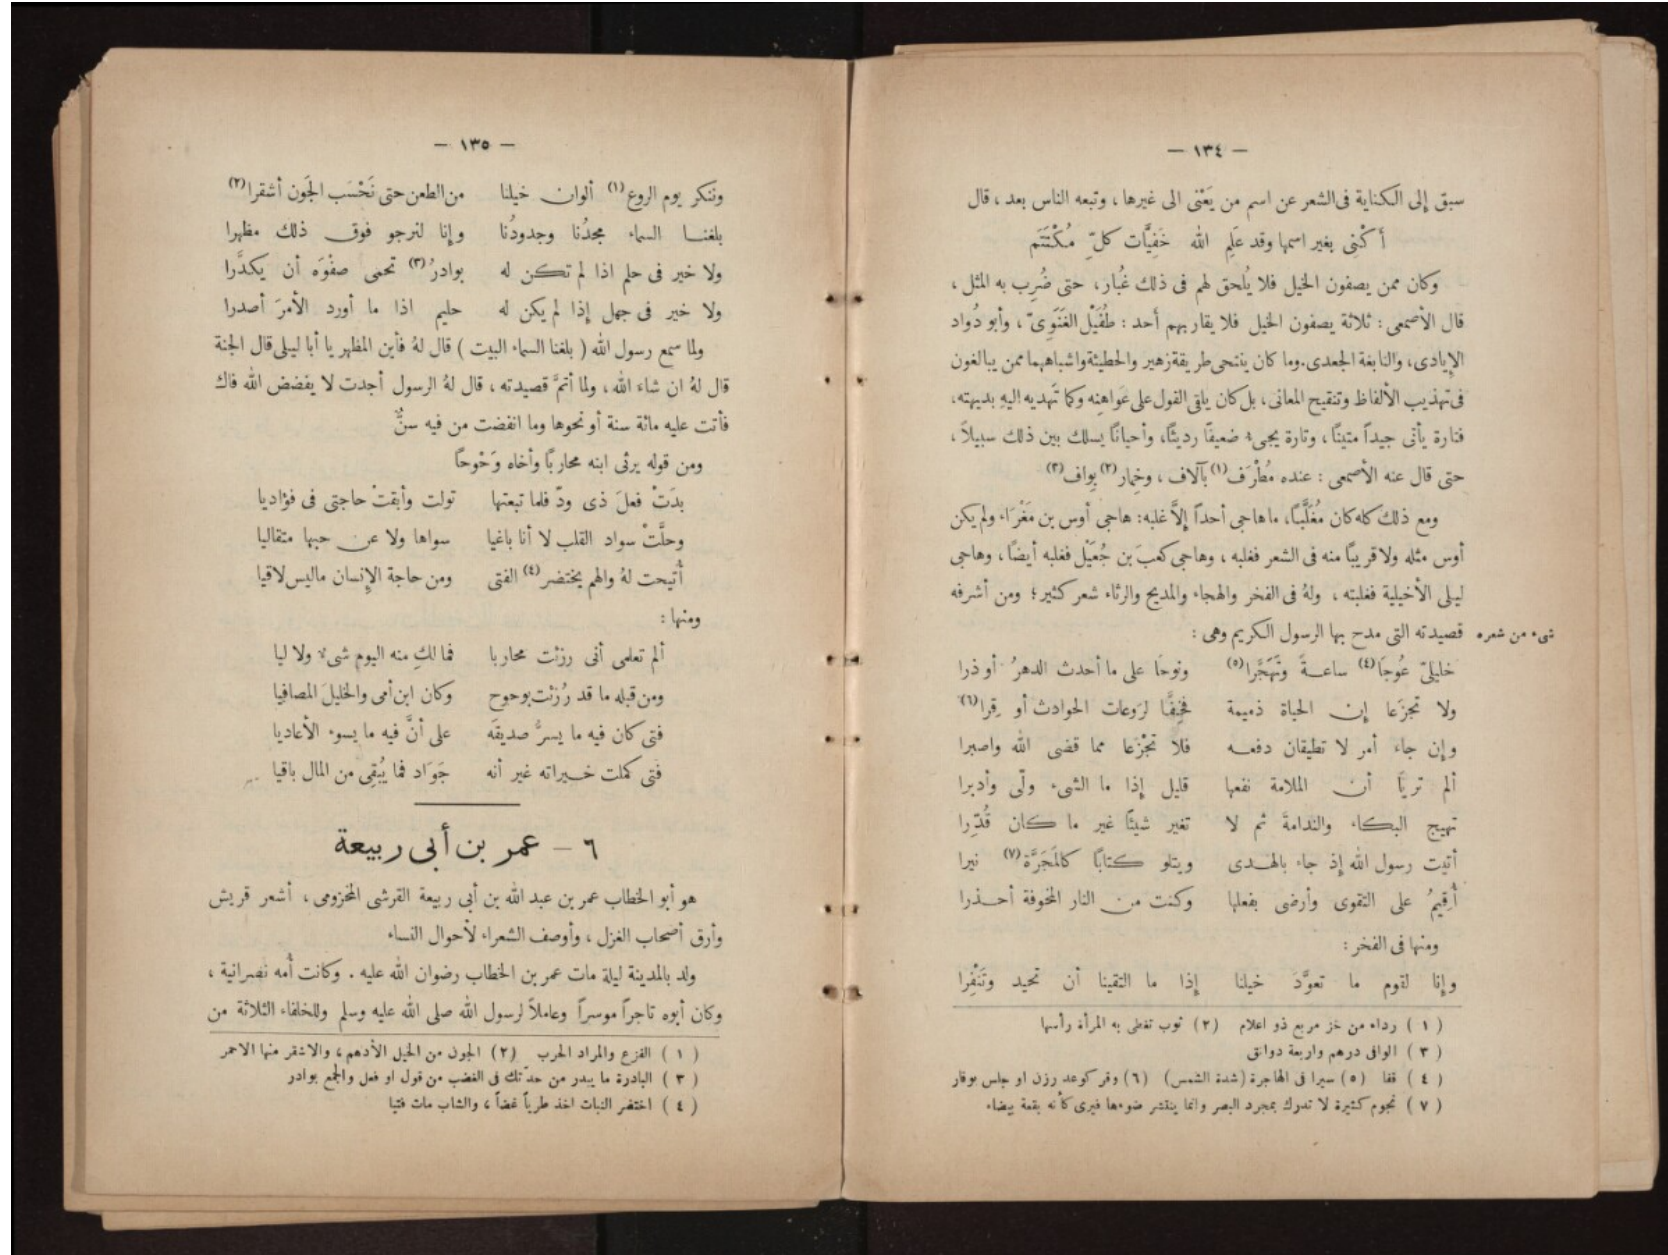 — ١٣٤ —
سبق إلى الكناية فى الشعر عن اسم من يَعْنى الى غيرها ، وتبعه الناس بعد ، قال
أكْنِى بغير اسمها وقد علِمَ الله خَفِيَّات كلِّ مُكْتَتَم
وكان ممن يصفون الخيل فلا يُلحق لهم فى ذلك غُبار، حتى ضُرِب به المثل ،
قال الأصمعى : ثلاثة يصفون الخيل فلا يقاربهم أحد : طُفَيْل الغَنَوِىّ ، وأبو دُواد
الإيادى، والنابغة الجعدى. وما كان ينتحى طريقة زهير والحطيئة واشباههما ممن يبالغون
فى تهذيب الألفاظ وتنقيح المعانى، بل كان يلقى القول على عَواهِنِه وكما تَهديه اليهِ بديهته،
فتارة يأتى جيداً متينًا ، وتارة يجىء ضعيفًا رديئًا، وأحيانًا يسلك بين ذلك سبيلاً ،
حتى قال عنه الأصمعى : عنده مُطْرَف(١) بآلاف ، وخِمار(٢) بواف(٣)
ومع ذلك كله كان مُغَلَّبًا، ما هاجى أحداً إلاَّ غلبه: هاجى أوس بن مَغْرَاء ولم يكن
أوس مثله ولا قريبًا منه فى الشعر فغلبه ، وهاجى كعبَ بن جُعَيْل فغلبه أيضًا ، وهاجى
ليلى الأخيلية فغلبته ، ولهُ فى الفخر والهجاء والمديح والرثاء شعر كثير؛ ومن أشرفه
شىء من شعره
قصيدته التى مدح بها الرسول الكريم وهى :
خليلىّ عُوجَا(٤) ساعــةً وتَهَجَّرا(٥) ونوحَا على ما أحدث الدهرُ أو ذرا
ولا تجزَعا إن الحياة ذميمة فخِفَّا لرَوعات الحوادث أو قِرا(٦)
وإن جاء أمر لا تطيقان دفعه فلا تجْزَعا مما قضى الله واصبرا
ألم تريَا أن الملامة نفعها قليل إذا ما الشىء ولّى وأدبرا
تهيج البكاء والندامةَ ثم لا تغير شيئًا غير ما كان قُدِّرا
أتيت رسول الله إذ جاء بالهدى ويتلو كتابًا كالمَجَرَّة(٧) نيرا
أُقِيمُ على التقوى وأرضى بفعلها وكنت من النار المخوفة أحذرا
ومنها فى الفخر :
وإنا لقوم ما تعوَّدَ خيلنا إذا ما التقينا أن تحيد وتَنْفِرا
( ١ ) رداء من خز مربع ذو اعلام (٢) ثوب تغطى به المرأة رأسها
( ٣ ) الوافى درهم واربعة دوانق
( ٤ ) قفا (٥) سيرا فى الهاجرة (شدة الشمس) (٦) وقر كوعد رزن او جلس بوقار
( ٧ ) نجوم كثيرة لا تدرك بمجرد البصر وانما ينتشر ضوءها فيرى كأنه بقعة بيضاء
— ١٣٥ —
وتنكر يوم الروع(١) ألوان خيلنا من الطعن حتى نَحْسَب الجَون أشقرا(٢)
بلغنــا السماء مجدُنا وجدودُنا وإنا لنرجو فوق ذلك مظهرا
ولا خير فى حلم اذا لم تكن له بوادرُ(٣) تحمى صفْوَه أن يكدَّرا
ولا خير فى جهل إذا لم يكن له حليم اذا ما أورد الأمرَ أصدرا
ولما سمع رسول الله ( بلغنا السماء البيت ) قال لهُ فأين المظهر يا أبا ليلى قال الجنة
قال لهُ ان شاء الله ، ولما أتمَّ قصيدته ، قال لهُ الرسول أجدت لا يفضض الله فاك
فأتت عليه مائة سنة أو نحوها وما انفضت من فيه سنٌّ
ومن قوله يرثى ابنه محاربًا وأخاه وَحْوحًا
بدَتْ فعلَ ذى ودّ فلما تبعتها تولت وأبقتْ حاجتى فى فؤاديا
وحلَّتْ سواد القلب لا أنا باغيا سواها ولا عن حبها متقاليا
أُتيحت لهُ والهم يختضر(٤) الفتى ومن حاجة الإنسان ما ليس لاقيا
ومنها :
ألم تعلمى أنى رزئت محاربا فما لكِ منه اليوم شىء ولا ليا
ومن قبله ما قد رُزئت بوحوح وكان ابن أمى والخليلَ المصافِيا
فتى كان فيه ما يسرُّ صديقَه على أنَّ فيه ما يسوء الأعاديا
فتى كملت خيراته غير أنه جَوَاد فما يُبقِى من المال باقيا
٦ – عمر بن أبى ربيعة
هو أبو الخطاب عمر بن عبد الله بن أبى ربيعة القرشى المخزومى ، أشعر قريش
وأرق أصحاب الغزل ، وأوصف الشعراء لأحوال النساء
ولد بالمدينة ليلة مات عمر بن الخطاب رضوان الله عليه . وكانت أُمه نصرانية ،
وكان أبوه تاجراً موسراً وعاملاً لرسول الله صلى الله عليه وسلم وللخلفاء الثلاثة من
( ١ ) الفزع والمراد الحرب (٢) الجون من الخيل الأدهم ، والاشقر منها الاحمر
( ٣ ) البادرة ما يبدر من حدّتك فى الغضب من قول او فعل والجمع بوادر
( ٤ ) اختضر النبات اخذ طرياً غضاً ، والشاب مات فتيا